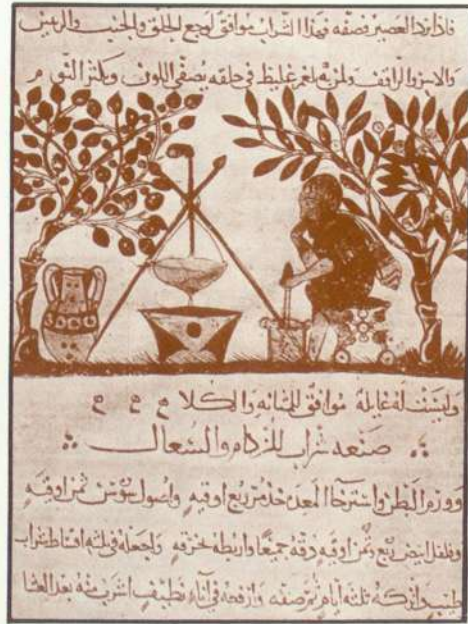 فاذا برد العصير فصفه فهذا الشراب موافق لوجع الحلق والجنب والرئتين
بلغم غليظ في حلقه يصفي اللون ويكثر النوم
وليست له غايلة موافق للمثانه والكلا م م م
صنعه شراب للزكام والسعال
وورم البطن واسترخا المعده خذ مر ربع اوقيه واصول سوس ثمن اوقيه
وفلفل ابيض ربع وثمن اوقيه دقه جميعا واربطه بخرقه واجعله في ثلثه اقساط شراب
طيب واتركه ثلثه ايام ثم صفه وارفعه في اناء نظيف اشرب منه بعد العشا